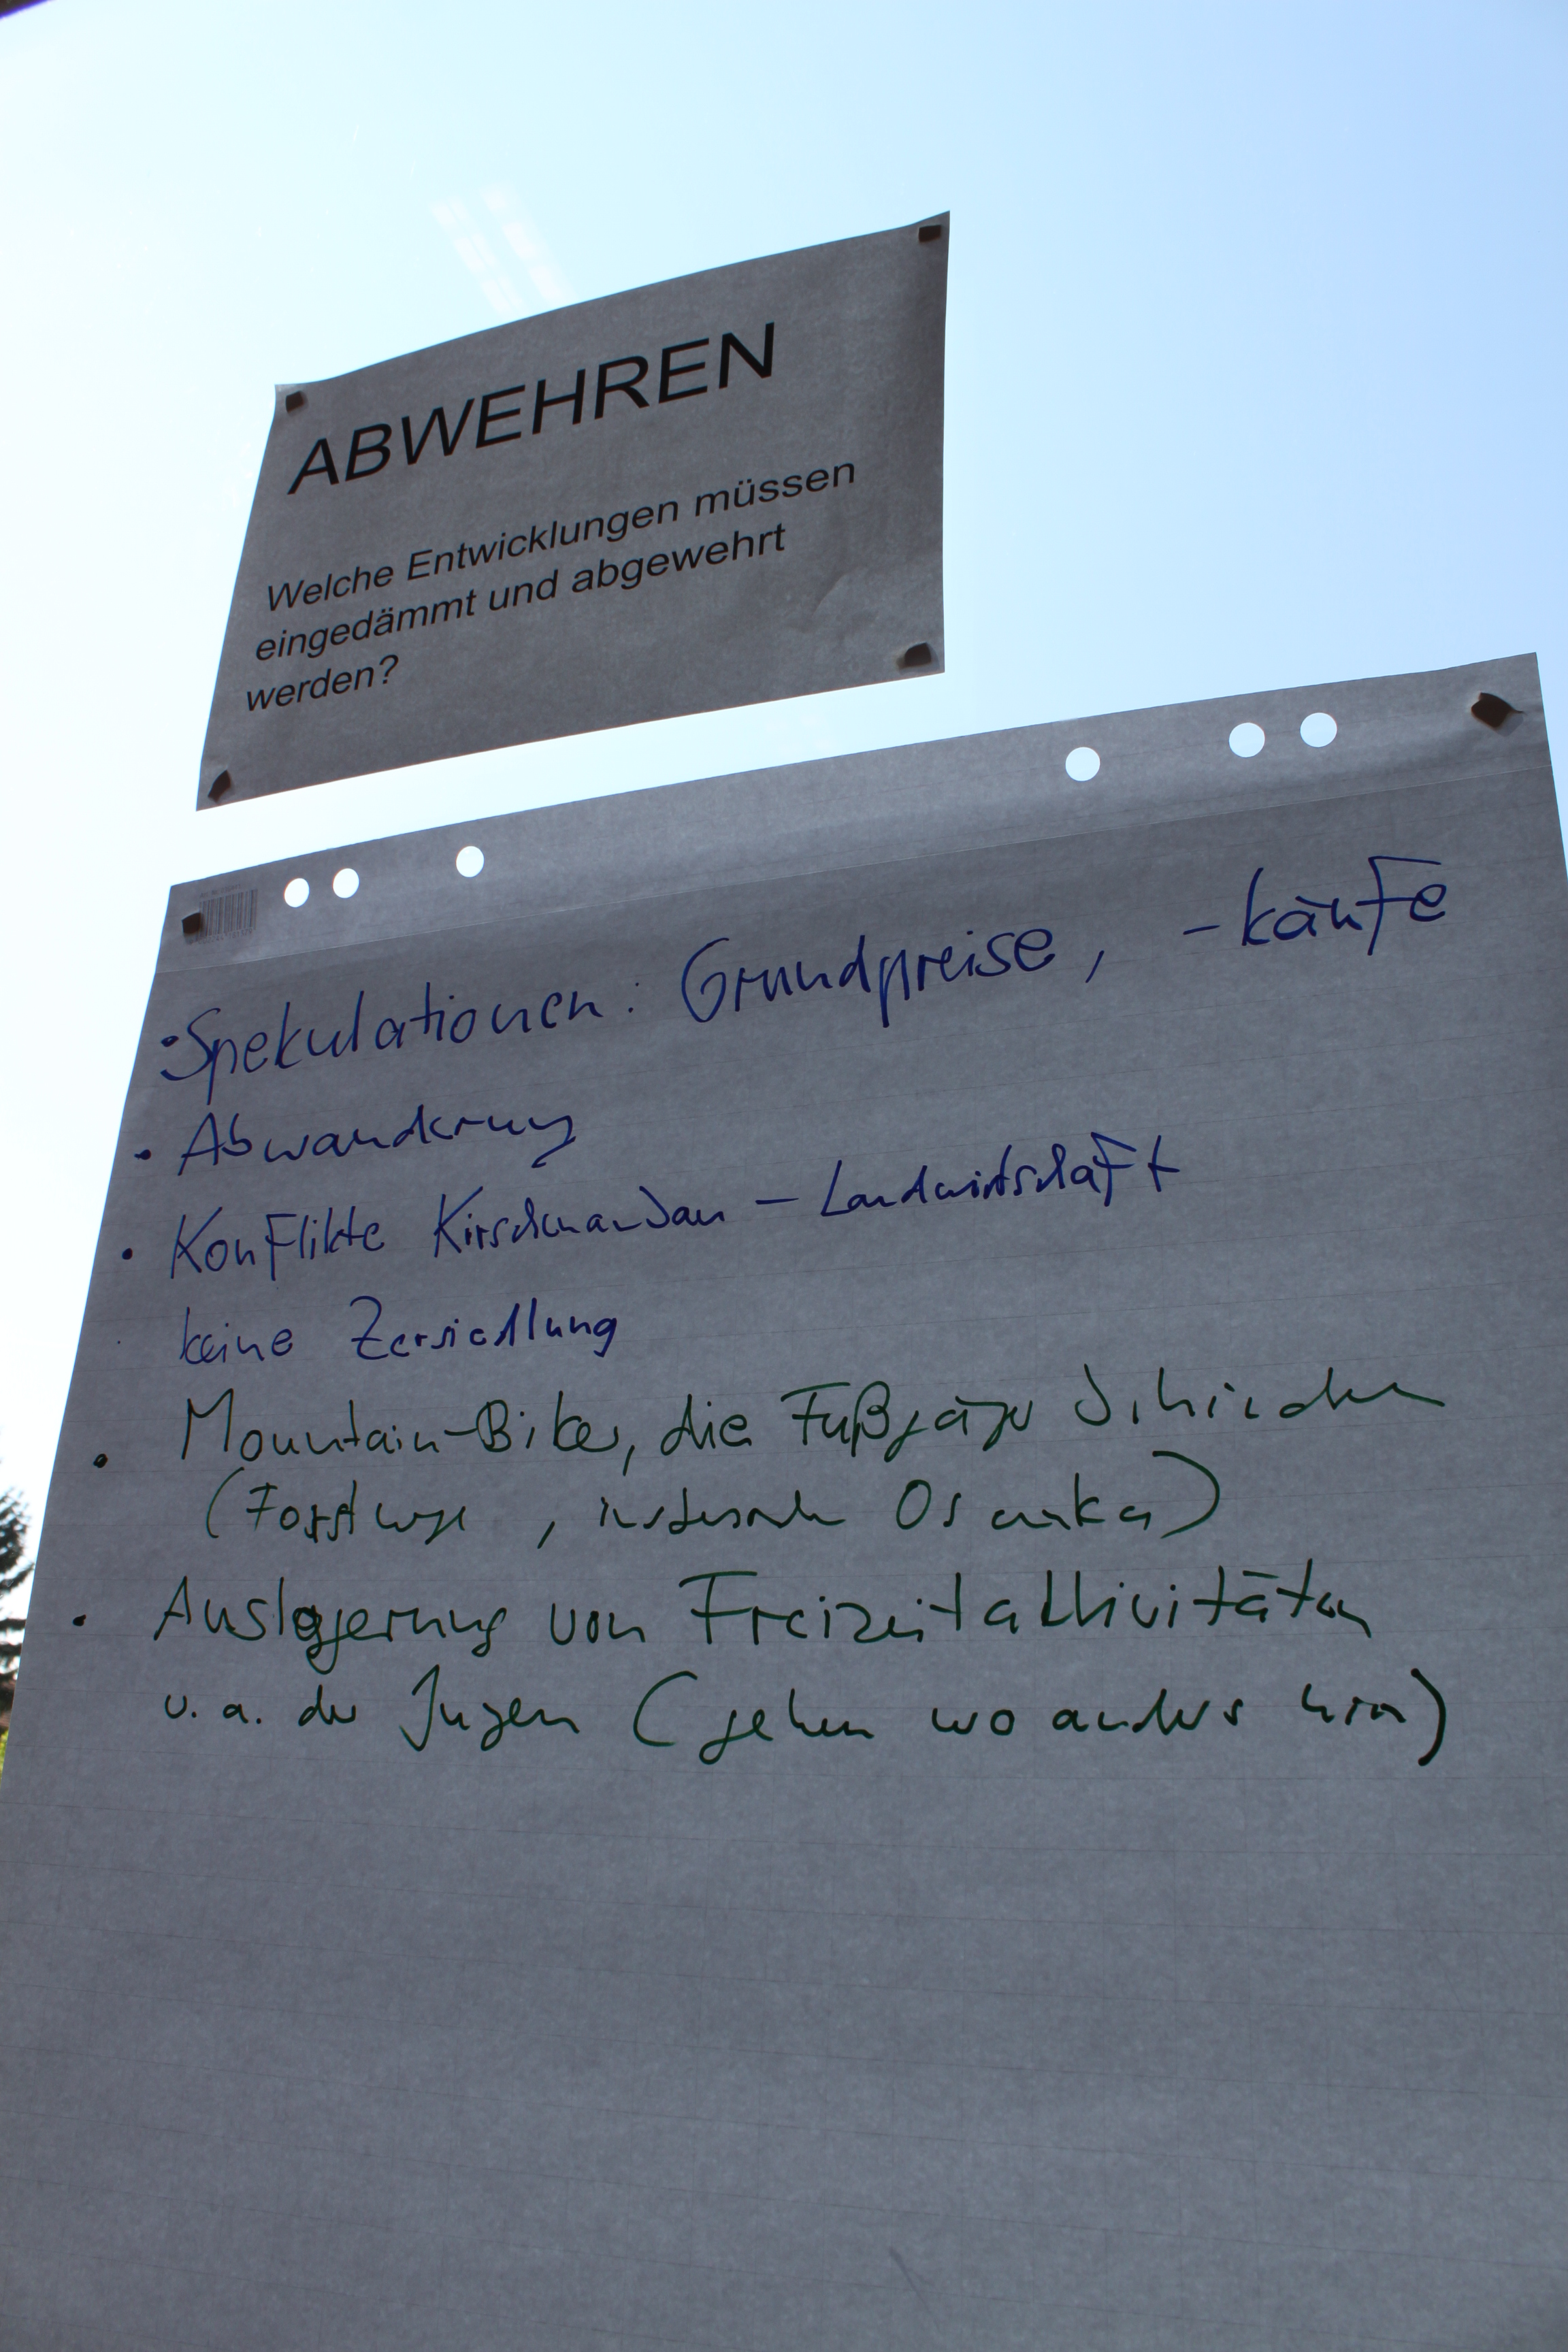 ABWEHREN
Welche Entwicklungen müssen
eingedämmt und abgewehrt
werden?
• Spekulationen: Grundpreise, -käufe
• Abwanderung
• Konflikte - Landwirtschaft
keine Zersiedlung
• Mountain-Biker, die Fußgänger
(Forstwege, insbesondere)
• Auslagerung von Freizeitaktivitäten
u. a. der Jugen (gehen wo anders hin)